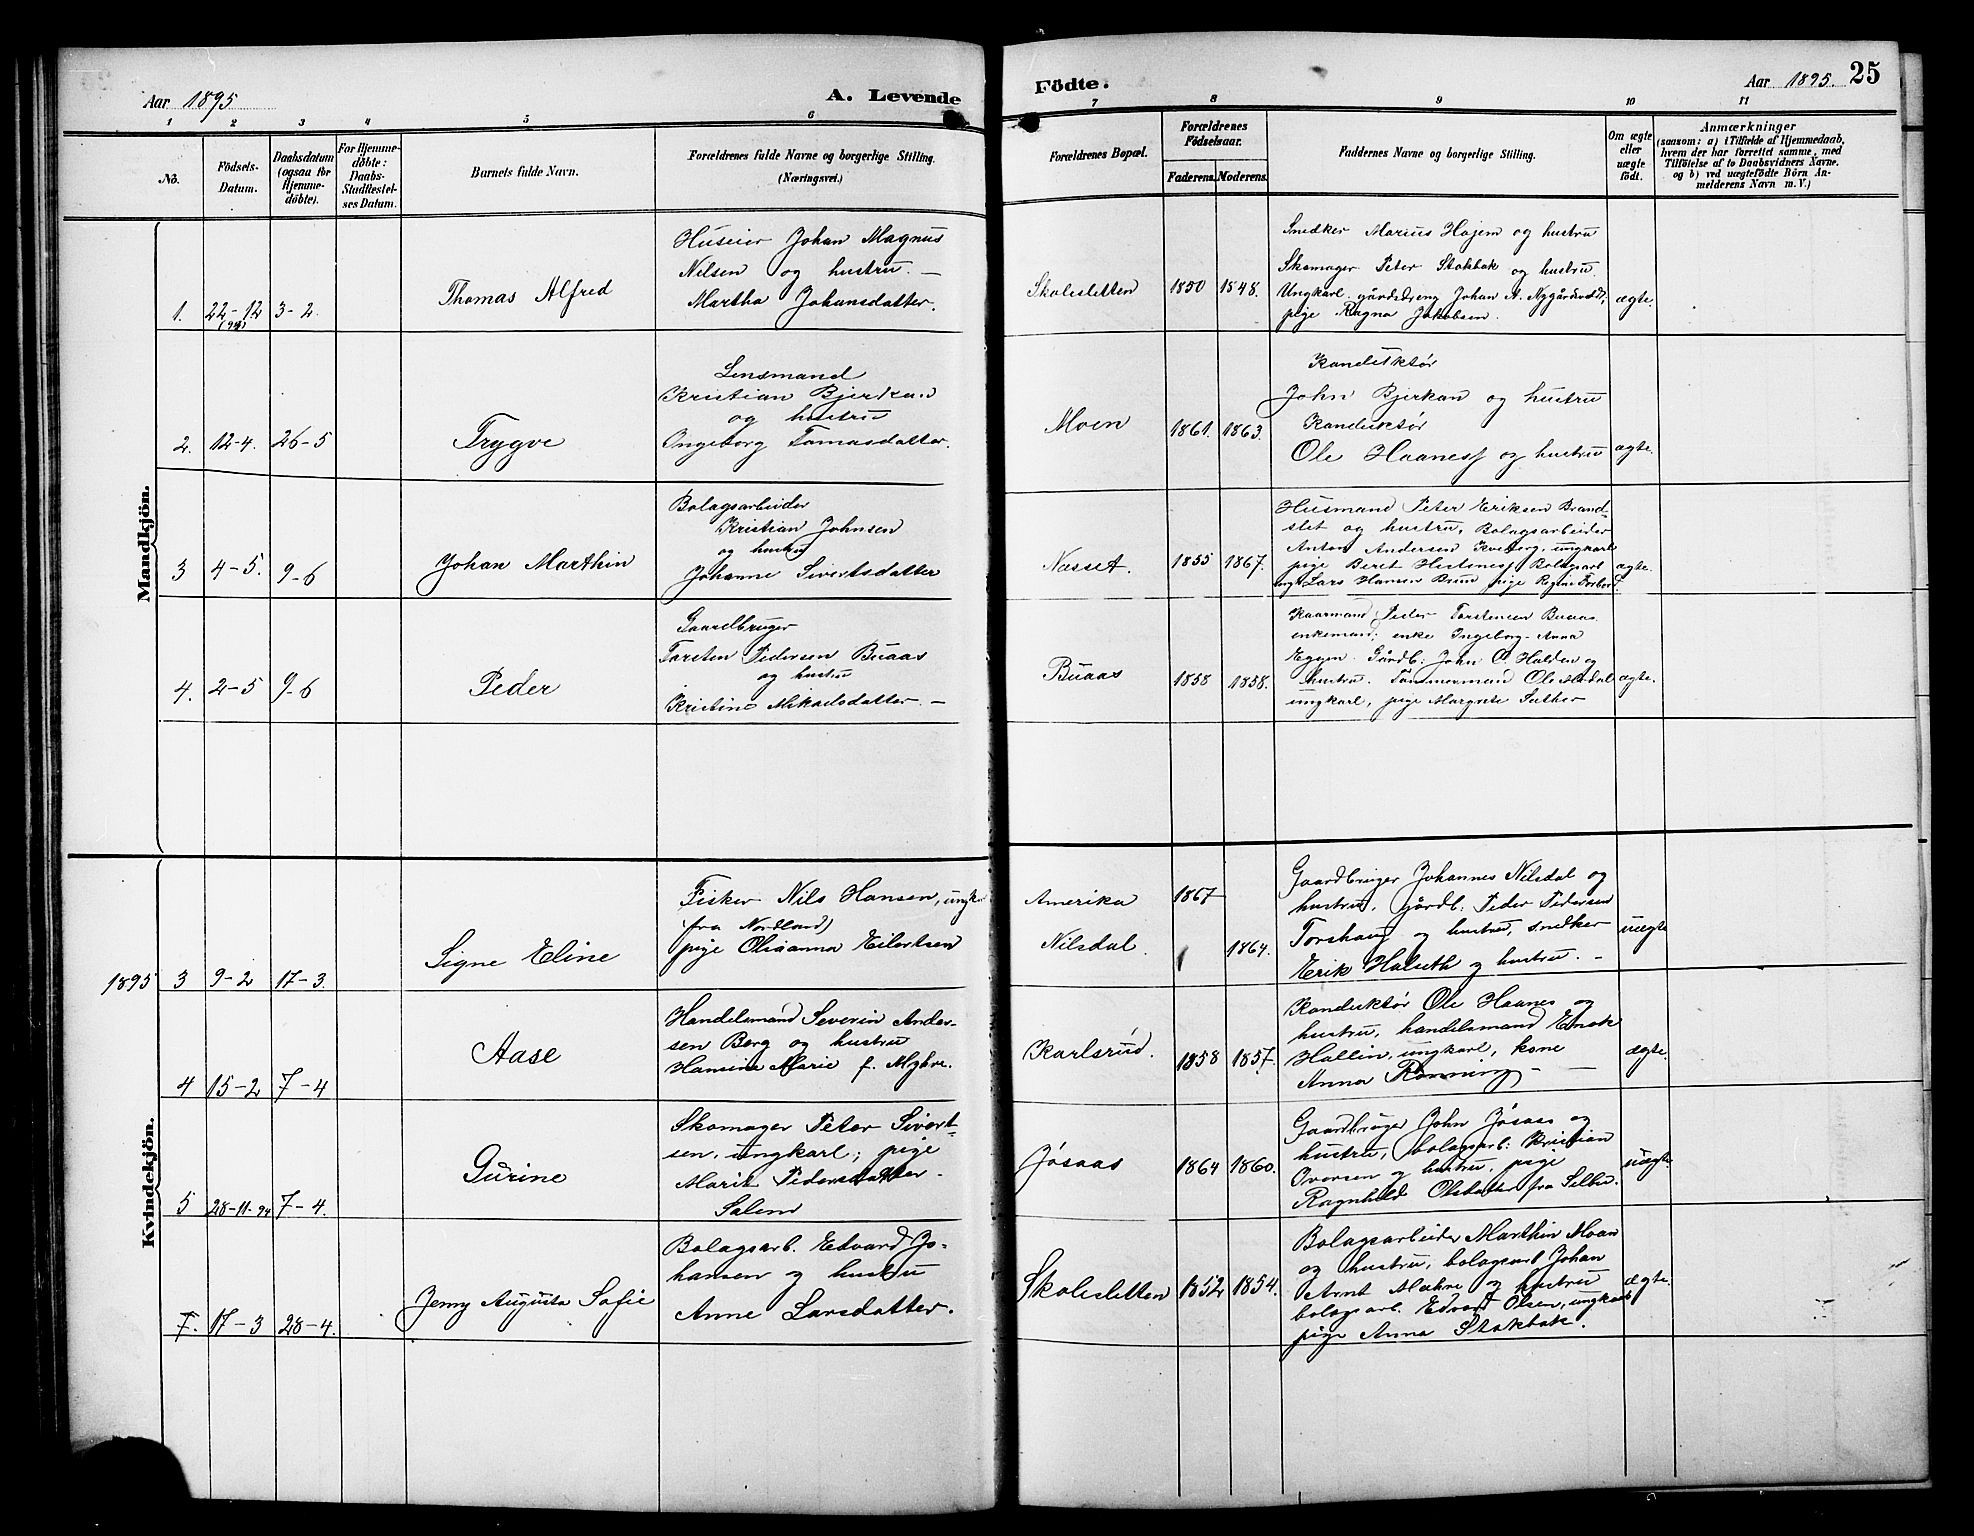 Aar 1895
A. Levende
1 2 3 4 5 6
No.
Födsels-
Datum.
Daabsdatum
(ogsaa for
Hjemme-
døbte).
For Hjemme-
døbte:
Daabs-
Stadfæstel-
ses Datum.
Barnets fulde Navn.
Forældrenes fulde Navne og borgerlige Stilling.
(Næringsvei.)
Mandkjön.
1. 22-12 (94) 3-2.
Thomas Alfred
Huseier Johan Magnus
Nilsen og hustru. —
Martha Johansdatter.
2. 12-4. 26-5
Trygve
Lensmand
Kristian Bjerkan
og hustru
Ongeborg Tomasdatter.
3 4-5. 9-6
Johan Marthin
Bolagsarbeider
Kristian Johnsen
og hustru
Johanne Sivertsdatter
4. 2-5 9-6
Peder
Gaardbruger
Torsten Pedersen Buaas
og hustru
Kristine Mikaelsdatter. —
Kvindekjön.
1895 3 9-2 17-3.
Signe Eline
Fisker Nils Hansen, ungk.
(fra Nordland)
pige Oleanna Eilertsen
4 15-2 7-4
Aase
Handelsmand Severin Ander-
sen Berg og hustru
Hansine Marie f. Myhre.
5 28-11-94 7-4.
Gurine
Skomager Peter Sivert-
sen, ungkarl; pige
Marit Pedersdatter
Salem
7. 17-3 28-4.
Jenny Augusta Sofie
Bolagsarb. Edvard Jo-
hansen og hustru
Anne Larsdatter.
Födte.
Aar 1895. 25
7 8 9 10 11
Forældrenes Bopæl.
Forældrenes
Födselsaar.
Faderens. Moderens.
Faddernes Navne og borgerlige Stilling.
Om ægte
eller
uægte
födt.
Anmærkninger
(saasom: a) i Tilfælde af Hjemmedaab,
hvem der har forrettet samme, med
Tilföielse af to Daabsvidners Navne.
og b) ved uægtefödte Börn An-
melderens Navn m. V.)
Skolesletten 1850 1848.
Snedker Marius Hojem og hustru
Skomager Peter Stokbak og hustru.
Ungkarl. gårdsdreng Johan A. Nygårdsvold,
pige Ragna Jakobsen.
ægte.
Moen 1861. 1863.
Konduktør
John Bjerkan og hustru
Konduktør
Ole Haanes og hustru
ægte.
Næsset. 1855 1867.
Husmand Peter Eriksen Brand-
slet og hustru, Bolagsarbeider
Anton Andersen Kveberg, ungkarl
pige Beret Bolagsarb
ungk Lars Hansen pige
ægte.
Buaas 1858 1858.
Kaarmand Peder Torstensen Buaas
enkemand; enke Ingeborg-Anna
Eggen. Gårdb: John O. Halden og
hustru. Tømmermand Ole
ungkarl, pige Margrete Sæther
ægte.
Amerika 1867
Nilsdal. 1864.
Gaardbruger Johannes Nilsdal og
hustru, gårdb: Peder Pedersen
Torshaug og hustru, snedker
Erik Halseth og hustru. —
uægte
Karlsrud. 1858 1857.
Konduktør Ole Haanes og
hustru, handelsmand Enok
Hallin, ungkarl, kone
Anna Rønning —
ægte.
Jøsaas 1864 1860.
Gaardbruger John Jøsaas og
hustru, bolagsarb: Kristian
Oversen og hustru. pige
Ragnhild Olsdatter fra Selbu.
uægte.
Skolesletten 1852 1854.
Bolagsarbeider Marthin Moan
og hustru, bolagsarb Johan
Arnt Mæhre og hustru
bolagsarb. Edvart Olsen, ungkarl
pige Anna Stokbak.
ægte.